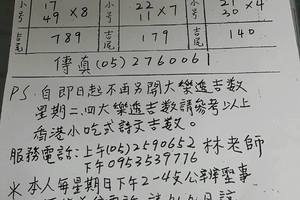 小号 17 49 ×8 小号 22 11 ×7 小号 21 30 ×4
吉尾 789 吉尾 179 吉尾 140
傳真(05)2760061
PS.自即日起不再另開大樂透吉数
星期二.四大樂透吉数請參考以上
香港小吃式詩文吉數。
服務電話:上午(05)2590652 林老師
下午0953539776
*本人每星期日下午2-4